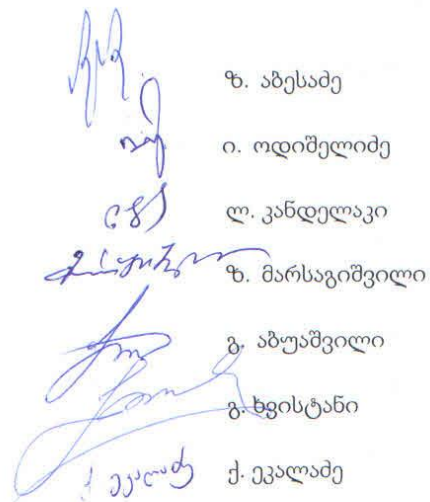 ზ. აბესაძე
ი. ოდიშელიძე
ლ. კანდელაკი
ზ. მარსაგიშვილი
გ. აბუაშვილი
გ. ხვისტანი
ქ. ეკალაძე